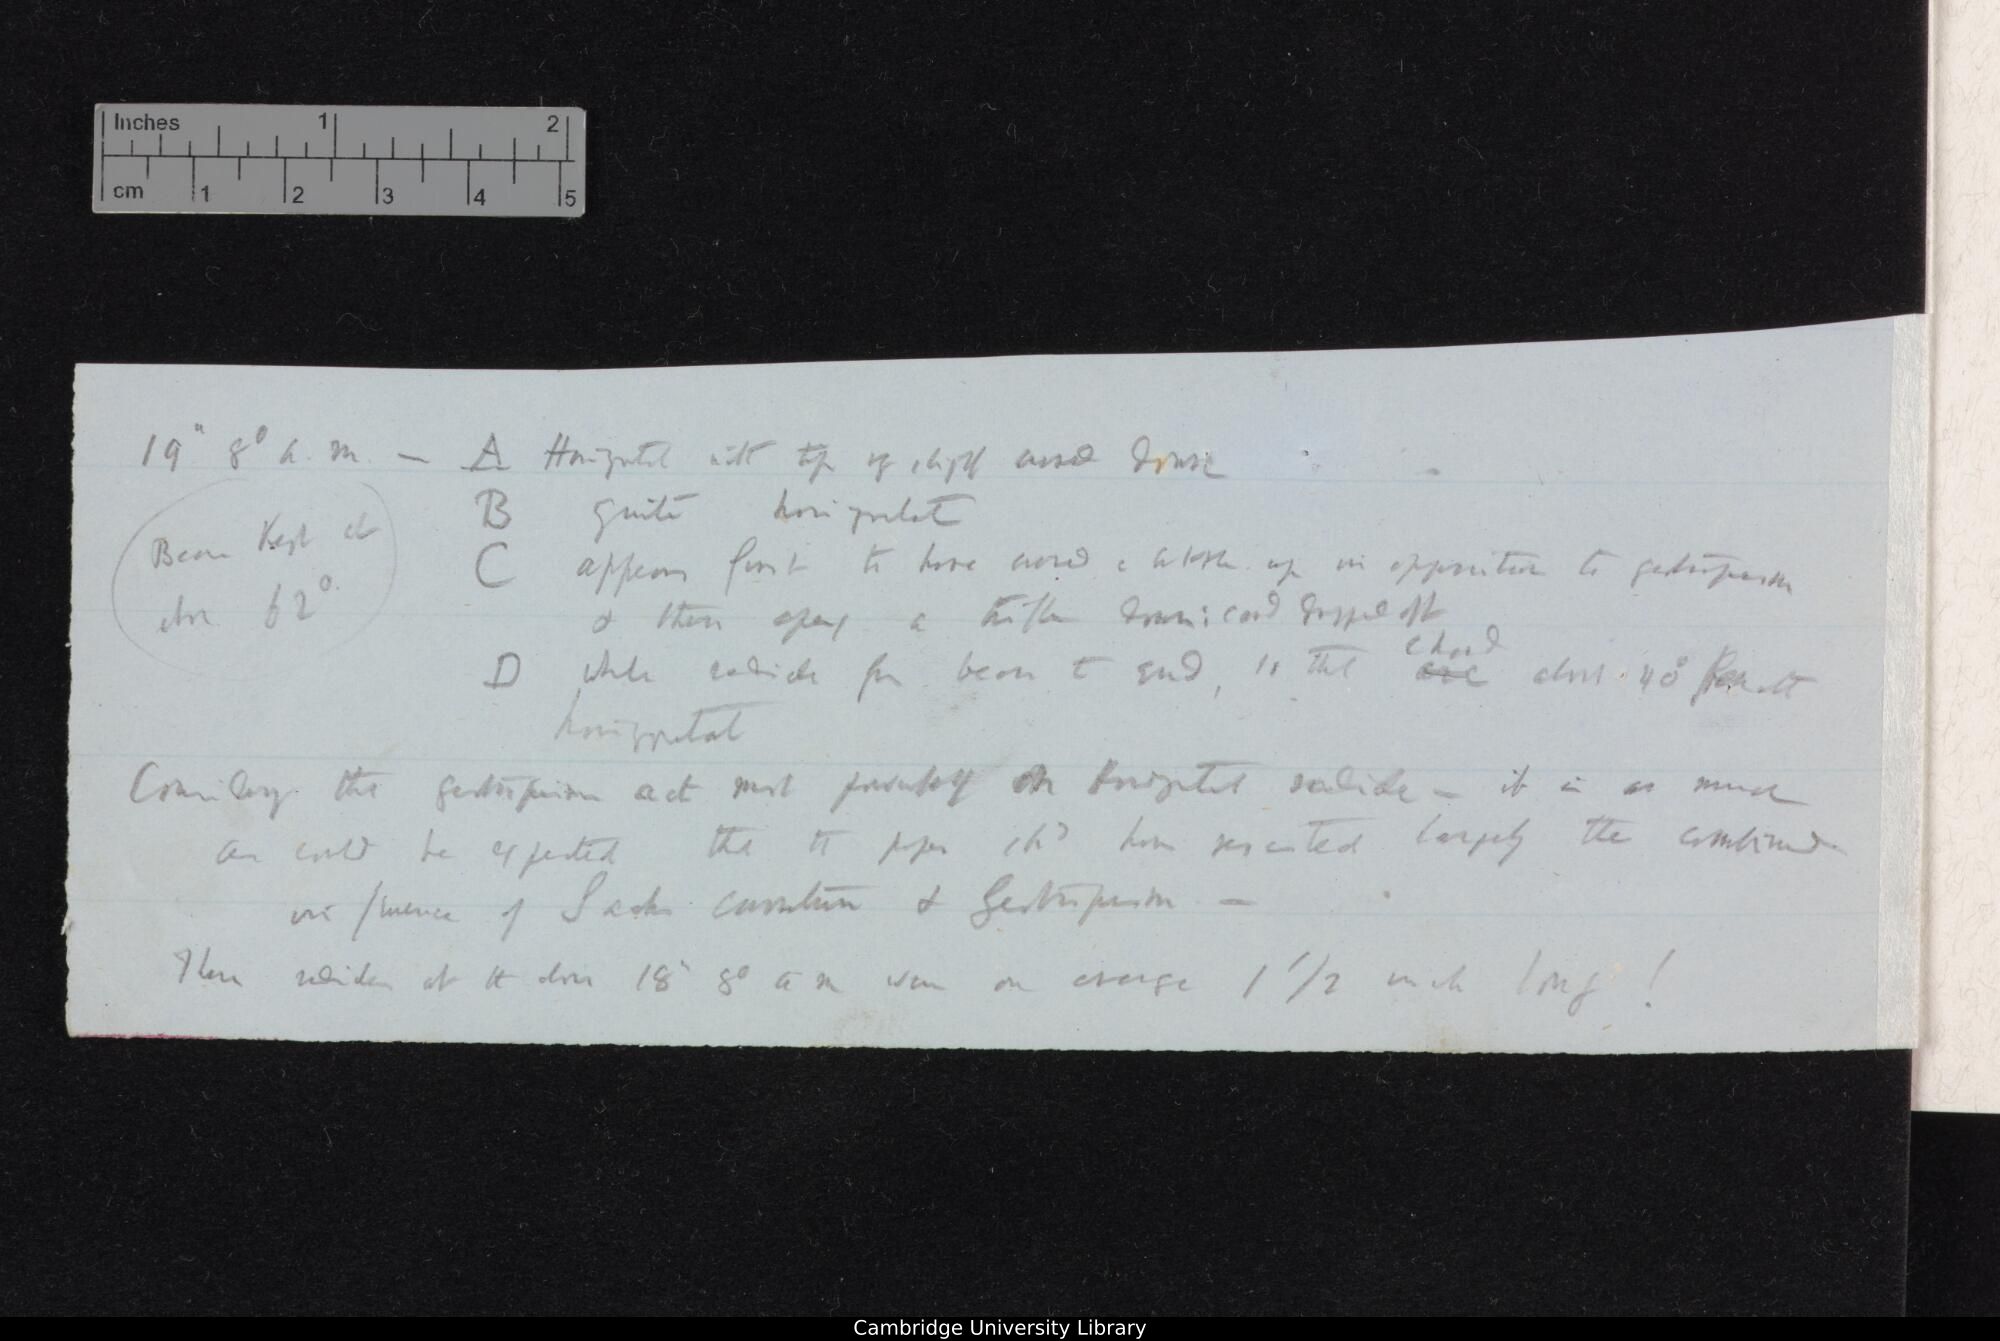 Inches 1 2
cm 1 2 3 4 5
19" 8° a.m. — A Horizontal with tip of slightly curved down
B quite horizontal
Bean Kept at
C appears first to have curved a little up in opposition to geotropism
abt 62°.
& then apex a trifle down: card dropped off
D whole radicle from bean to end, is the chord arc about 40° Beneath
horizontal
Considering the geotropism act most powerfully on Horizontal radicle — it is as much
as could be expected that the paper shd have resisted largely the combined
influence of Sachs curvature & Geotropism —
These radicles at the above 18" 8° a m were on average 1 1/2 inch long!
Cambridge University Library